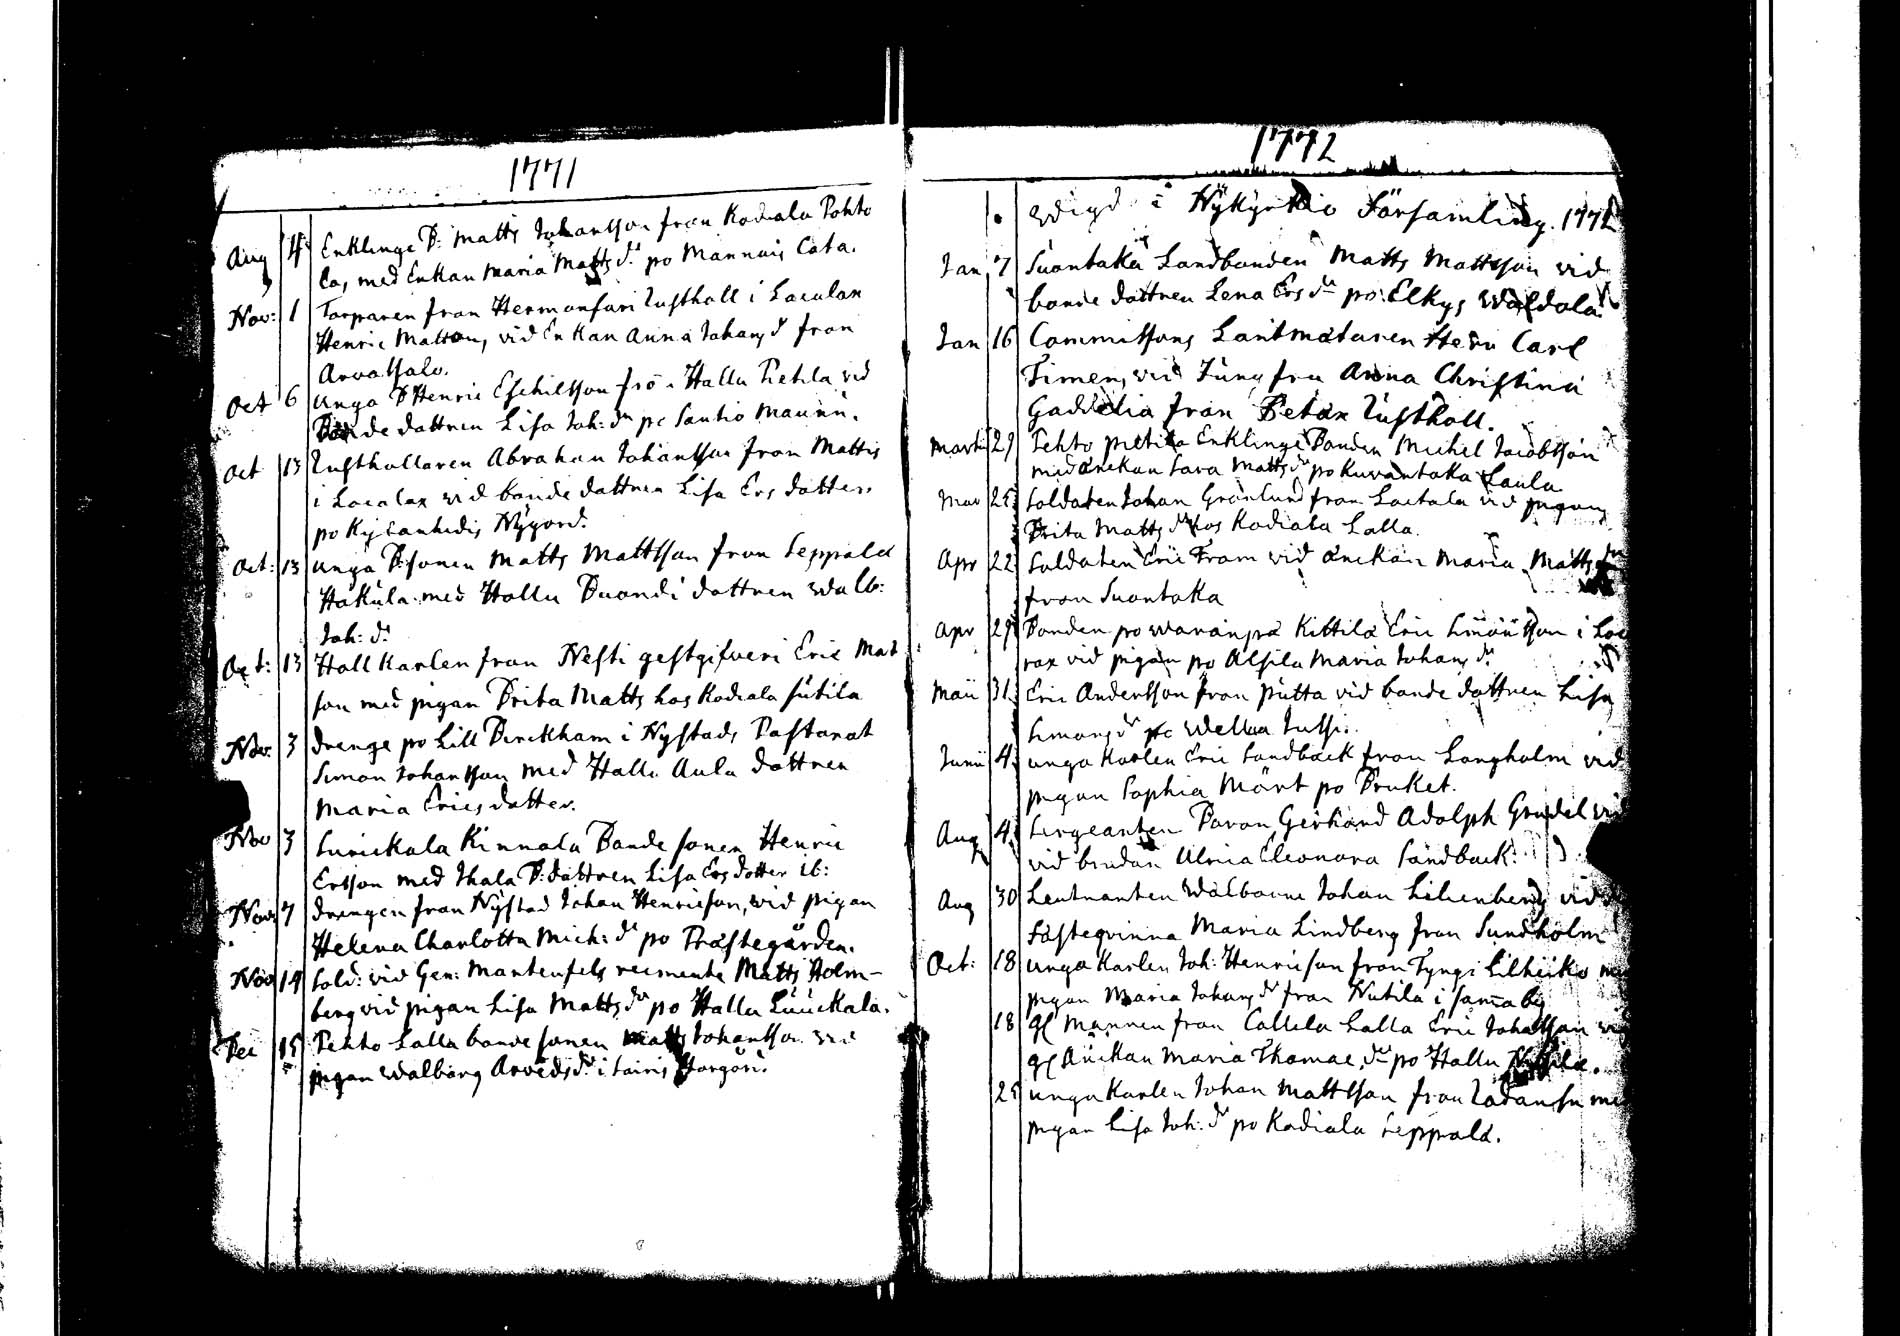 1771
Aug 4 Enklinge B: Matts Johansson från Kodiala Pohto
la, med Enkan Maria Matts dr po Mannais Cata.
Nov: 1 Torparen fran Hermansari Rusthall i Localax
Henric Matton, vid Enkan Anna Johans d fran
Arvassalo.
Oct 6 unga B Henric Eschilsson frö Hallu Pietila vid
Bonde dattren Lisa Joh: dr po Santio Maunu.
Oct 13 Rusthallaren Abraham Johansson fran Mattis
i Localax vid bonde dattren Lisa Ers datter
po Kylanhidis Nygord.
Oct: 13 unga B:sonen Matts Mattsson fran Seppälä
Hakula med Hallu Buondi dattren Walb:
Joh: dr
Oct: 13 Hall Karlen fran Nesti gestgifveri Eric Mat
son med pigan Brita Matts hos Kodiala sutila
Nov. 3 drenge po Lill Birckham i Nystads Pastorat
Simon Johansson med Hallu Aula dattren
Maria Erics datter.
Nov 3 Surickala Kinnala Bonde sonen Henric
Ersson med Ihala B:dattren Lisa Ers dotter ib:
Nov 7 drengen fran Nystad Johan Henricson, vid pigan
Helena Charlotta Mich: dr po Prästegården.
Nov 14 Sold: vid Gen: Manteufels reimente Matts Holm-
berg vid pigan Lisa Matts dr po Hallu Luuckala.
Dec 15 Pehto Lalla bonde sonen Matts Johansson vid
pigan Walborg Arveds dr i Sairis
1772
Wigd i Nykyrkio Församling. 1772
Jan 7 Suontaka Landbonden Matts Mattsson vid
bonde dattren Lena Ers dr po Elkys Waldola
Jan 16 Commissons Lantmätaren Herr Carl
Timen, vid Jungfru Anna Christina
Gaddelia fran Betäx Rusthall.
Martii 29 Pehto Enklinge Bonden Michel Jacobsson
med änckan Sara Matts dr po Kuvantaka Laula
Mar 25 Soldaten Johan Grönlund fran Laitala vid pigan
Brita Matts dr hos Kodiala Lalla.
Apr 22 Soldaten Eric Fram vid änckan Maria Matts dr
fran Suontaka
Apr 29 Bonden po Waranpä Kittilä Eric i Loc
rax vid pigan po Alsila Maria Johans dr
Maii 31. Eric Andersson fran Putta vid bonde dattren Lisa
Simons dr po Wellua Jussi.
Junii 4. unga Karlen Eric Sandback fran Langholm vid
pigan Sophia Mört po Bruket.
Aug 4. Sergeanten Baron Gerhard Adolph Grudel vid
vid brudan Ulrica Eleonora Sandback.
Aug 30 Leutnanten Wälborne Johan Lilienberg vid
fästeqvinna Maria Lindberg fran Sundholm
Oct: 18 unga Karlen Joh: Henricson fran Tyngi Lilheiko
pigan Maria Johans dr fran Nutila i sama by
18 gl Mannen fran Callela Lalla Eric Johansson vid
gl Änckan Maria Thomae dr po Hallu
25 unga Karlen Johan Mattsson fran
pigan Lisa Joh: dr po Kodiala Seppälä.